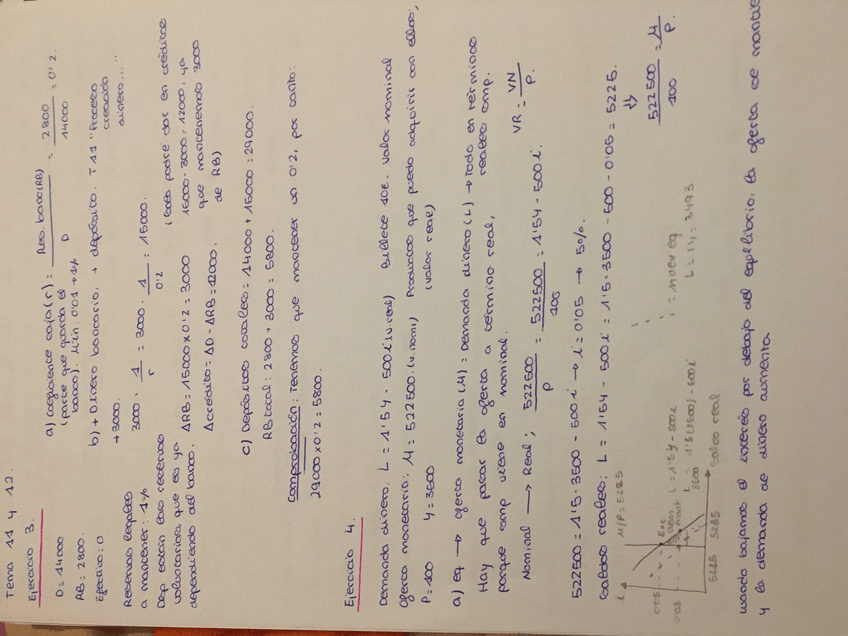 Tema 11 y 12.
Ejercicio 3.
D = 14000
RB = 2800.
Efectivo = 0
Reservas legales
a mantener: 1%
Dsp están las reservas
voluntarias, que es ya
dependiendo del banco.
a) Coeficiente caja (r) = Res. banc (RB) / D = 2800 / 14000 = 0'2.
(parte que guarda el
banco). Mín: 0'01 → 1%
b) + Dinero bancario, + depósito. T11 "Proceso
creación
dinero..."
+3000.
3000 · 1/r = 3000 · 1/0'2 = 15000.
ΔRB = 15000 x 0'2 = 3000
Δcrédito = ΔD - ΔRB = 12000.
(solo podré dar en créditos
15000 - 3000 = 12000, ya
que mantenemos 3000
de RB)
c) Depósitos totales = 14000 + 15000 = 29000.
RB total: 2800 + 3000 = 5800.
Comprobación: Tenemos que mantener un 0'2, por tanto:
29000 x 0'2 = 5800.
Ejercicio 4.
Demanda dinero: L = 1'5Y - 500i (v. real) Billete 10€. Valor nominal
Oferta monetaria: M = 522500. (v. nomi) Productos que puedo adquirir con ellos;
P = 100 Y = 3500 (valor real)
a) eq → oferta monetaria (M) = Demanda dinero (L) → todo en términos
reales comp.
Hay que pasar la oferta a término real,
porque comp viene en nominal. VR = VN / P.
Nominal → Real; 522500 / P = 522500 / 100 = 1'5Y - 500i
522500 = 1'5 · 3500 - 500i → i = 0'05 → 5%.
Saldos reales: L = 1'5Y - 500i = 1'5 · 3500 - 500 · 0'05 = 5225.
⇓
522500 / 100 = M / P.
i M/P = 5225
L = 1'5Y - 500i
L = 1'5 (3500) - 500i
5225 5235 Saldo real
i = nuev eq
cuando bajamos el interés por debajo del equilibrio, la oferta se mantie
y la demanda de dinero aumenta.